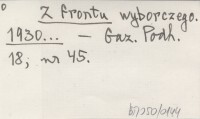 Z frontu wyborczego.
1930... — Gaz. Podh.
18; nr 45.